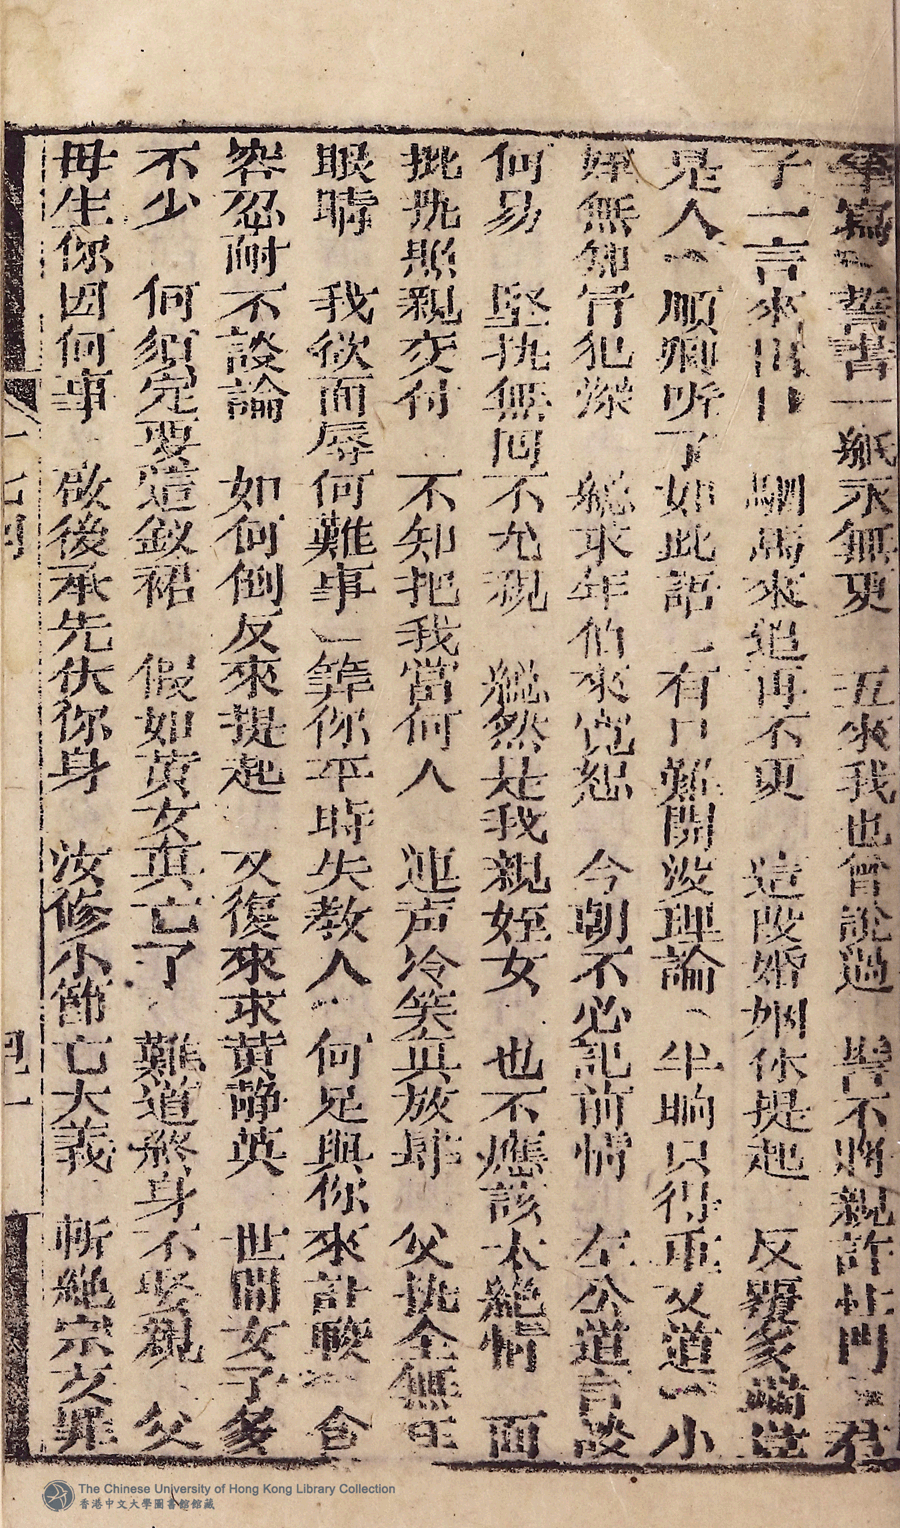 筆寫〻誓書一紙永無更　五來我也曾說過　誓不將親許杜門〻君
子一言來出口　駟馬來追再不更　這段婚姻休提起　反覆多端豈
是人〻順卿听了如此語〻有口難開没理論〻半晌只得重又道〻小
姪無知冒犯深　總求年伯來寬恕　今朝不必記前情　左公道言談
何易　堅執無囘不允親　縱然是我親姪女　也不應該太絶情　面
批執照親交付　不知把我當何人　連声冷笑真放肆　父執全無在
眼睛　我欲面辱何難事〻筭你平時失教人〻何足與你來計較〻含
容忍耐不談論　如何倒反來提起　又復來求黃静英　世間女子多
不少　何須定要這釵裙　假如黃女真亡了　難道終身不娶親　父
母生你因何事　啟後承先伏你身　汝修小節亡大義　斬絶宗支罪